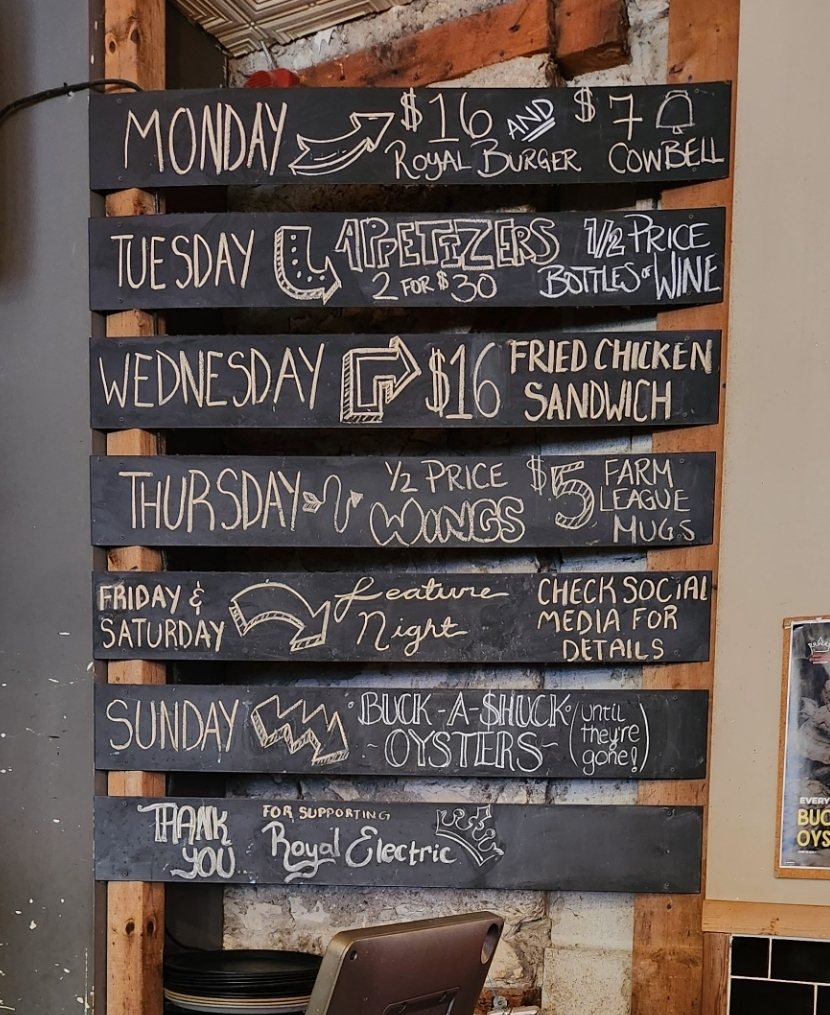 MONDAY $16 AND $7
ROYAL BURGER COWBELL
TUESDAY APPETIZERS 1/2 PRICE
2 FOR $30 BOTTLES OF WINE
WEDNESDAY $16 FRIED CHICKEN
SANDWICH
THURSDAY 1/2 PRICE $5 FARM
WINGS LEAGUE
MUGS
FRIDAY & Feature CHECK SOCIAL
SATURDAY Night MEDIA FOR
DETAILS
SUNDAY BUCK-A-$HUCK (until
~OYSTERS~ they're
gone!)
THANK FOR SUPPORTING
YOU Royal Electric
EVERY
BUC
OYS